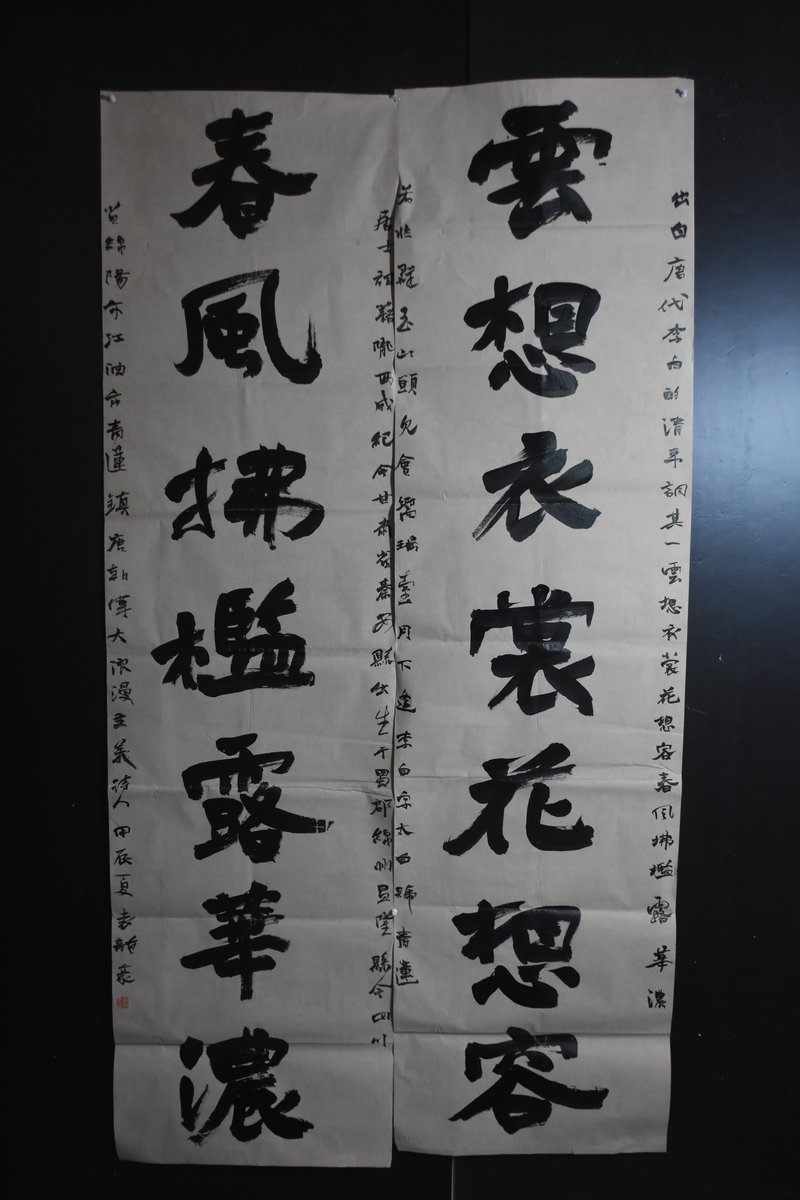 雲想衣裳花想容
春風拂檻露華濃
出自唐代李白的清平調其一雲想衣裳花想容春風拂檻露華濃
若非群玉山頭見會嚮瑤臺月下逢李白字太白號青蓮
居士祖籍隴西成紀今甘肅省秦安縣出生于蜀郡綿州昌隆縣今四川
省綿陽市江油市青蓮鎮唐朝偉大浪漫主義詩人甲辰夏袁